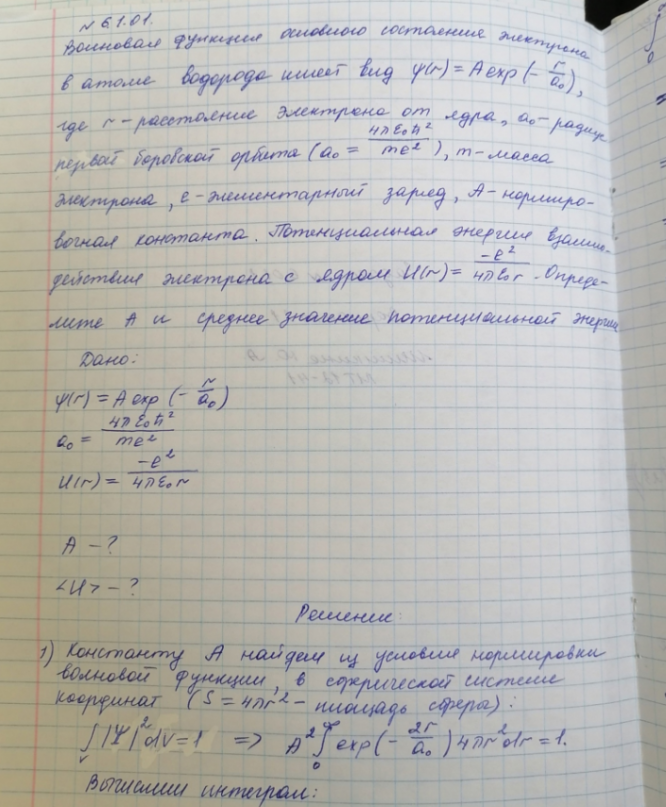 № 61.01.
Волновая функция основного состояния электрона
в атоме водорода имеет вид ψ(r) = A exp(- r/a₀),
где r - расстояние электрона от ядра, a₀ - радиус
первой боровской орбиты (a₀ = 4πε₀ħ²/me²), m - масса
электрона, e - элементарный заряд, A - нормиро-
вочная константа. Потенциальная энергия взаимо-
действия электрона с ядром U(r) = -e²/4πε₀r. Опреде-
лите A и среднее значение потенциальной энергии
Дано:
ψ(r) = A exp(- r/a₀)
a₀ = 4πε₀ħ²/me²
U(r) = -e²/4πε₀r
A - ?
<U> - ?
Решение:
1) Константу A найдем из условия нормировки
волновой функции, в сферической системе
координат (S = 4πr² - площадь сферы):
∫ᵥ |Ψ|² dV = 1 => A² ∫₀^∞ exp(- 2r/a₀) 4πr² dr = 1.
Вычислим интеграл: